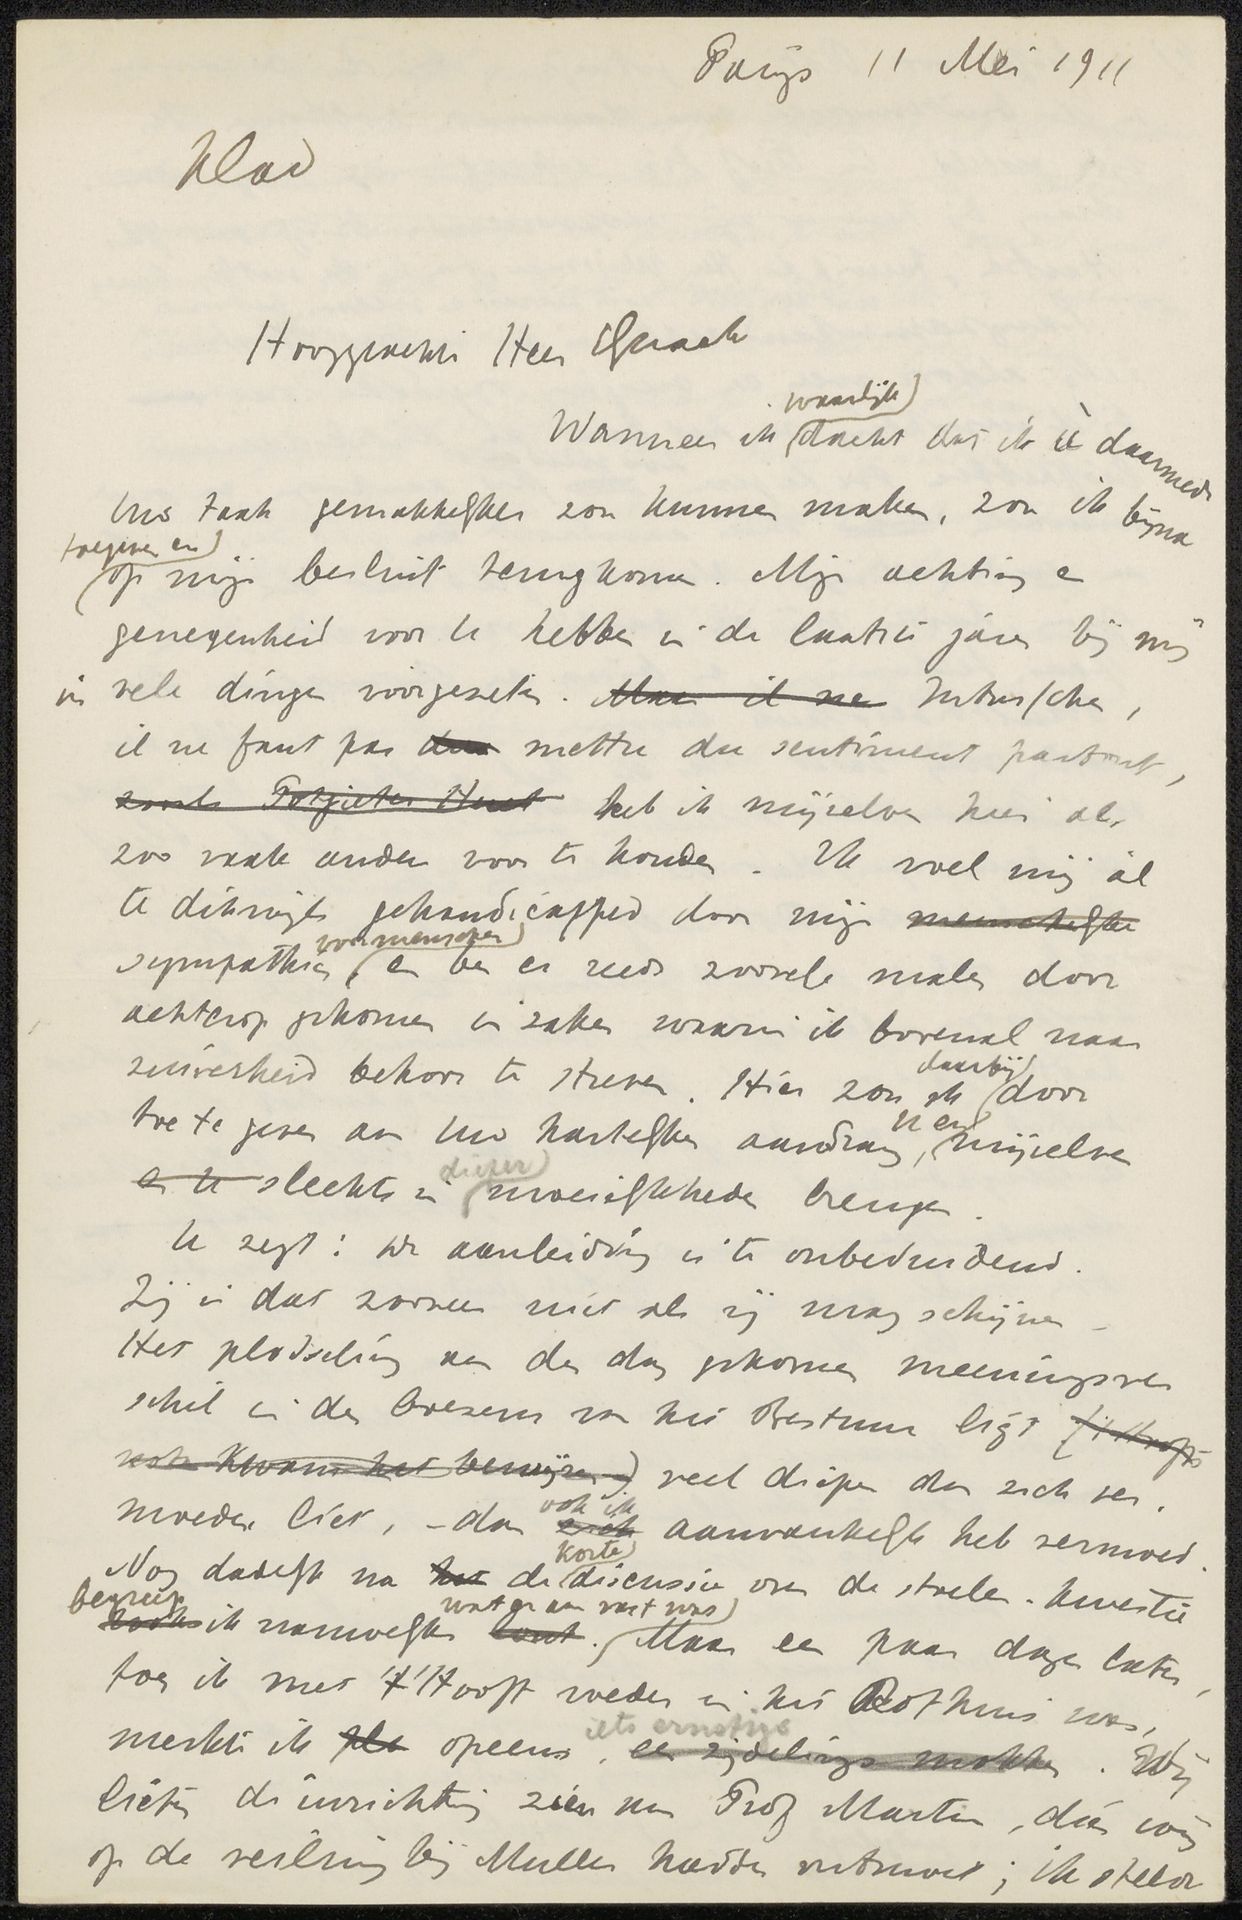 Parijs 11 Mei 1911
Klad
Hooggeachte Heer
waarlijk
Wanneer ik dacht dat ik U daarmede
Uw taak gemakkelijker zou kunnen maken, zou ik bijna
toegeven en
op mijn besluit terugkomen. Mijn achting en
genegenheid voor U hebben in de laatste jaren bij mij
in vele dingen voorgezeten. Maar il ne Intusschen,
il ne faut pas mettre du sentiment partout,
zooals Potgieter Huet heb ik mijzelven hier al
zoo vaak onder voor te houden. Ik voel mij al
te dikwijls gehandicapped door mijn menschelijke
voor menschen
sympathien, en ben er reeds zoovele malen door
achterop gekomen in zaken waarin ik bovenal naar
zuiverheid behoor te streven. Hier zou ik door
daarbij
toe te geven aan Uw hartelijken aandrang, mijzelven
U en
en U slechts in moeielijkheden brengen.
dieper
U zegt: de aanleiding is te onbeduidend.
Zij is dat zoozeer niet als zij mag schijnen –
Het plotseling aan den dag gekomen meeningsver
schil in den boezem van het Bestuur ligt ('t Hooft's
kwam het bewijzen) veel dieper dan zich ver-
moeden liet, – dan ook ik aanvankelijk heb vermoed.
Nog dadelijk na het de korte discussie over de stoelen-kwestie
begreep ik nauwelijks wat er aan vast was. Maar een paar dagen later,
toen ik met 't Hooft weder in het Mosthuis was,
iets ernstigs
merkte ik opeens een zijdelings mokken. Wij
lieten de inrichting zien aan Prof Martin, dien wij
op de veiling bij Muller hadden ontmoet; ik stelde